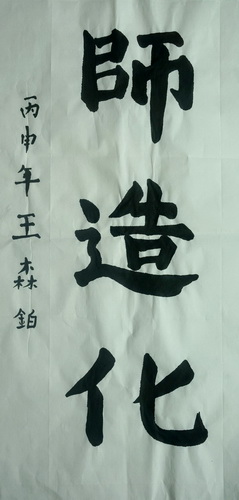 師造化
丙申年王森鉑